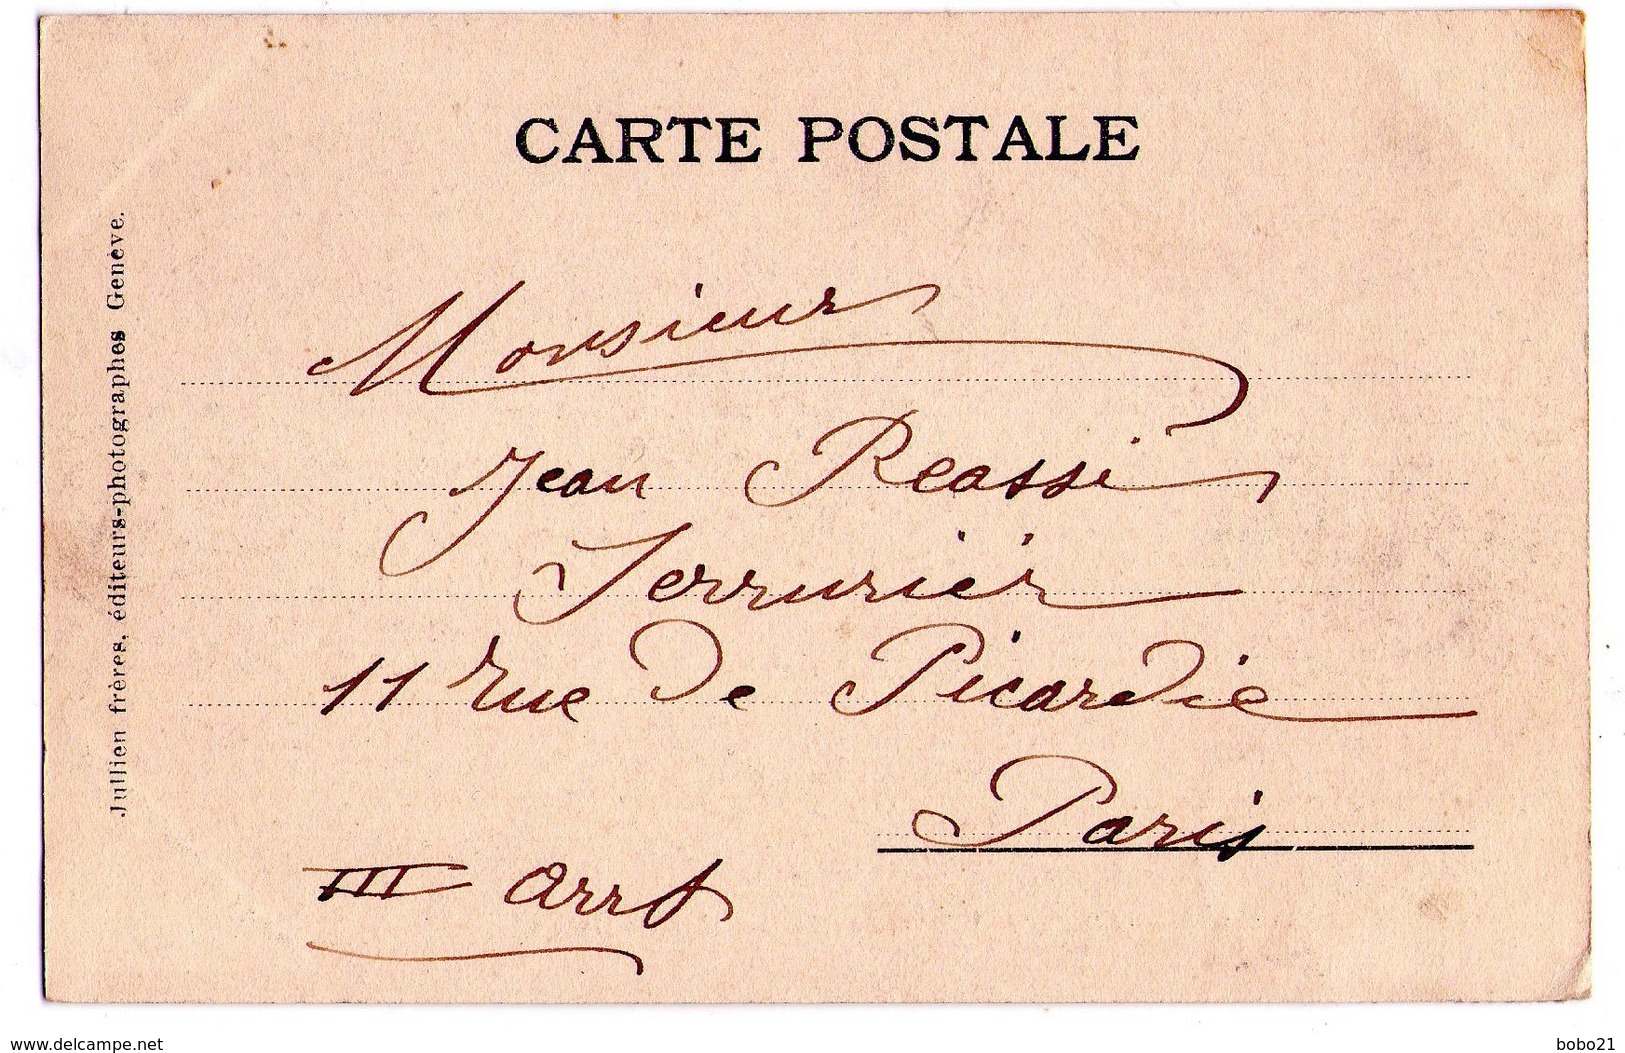 CARTE POSTALE
Jullien frères, éditeurs-photographes Genève.
Monsieur
Jean Reassi
Serrurier
11 rue De Picardie
Paris
III arrt
www.delcampe.net
bobo21